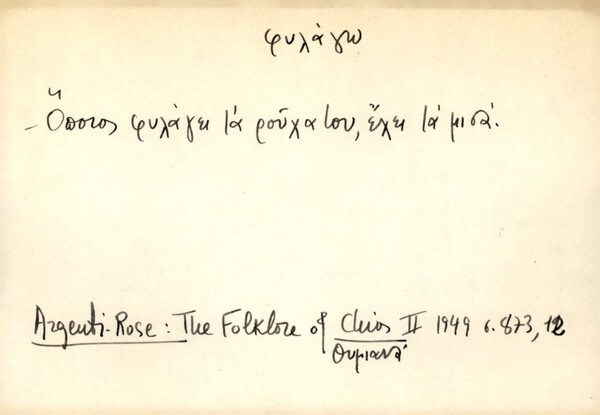 φυλάγω
– Ὅποιος φυλάγει τά ροῦχα του, ἔχει τά μισά.
Argenti-Rose: The Folklore of Chios II 1949 σ. 873, 12
Θυμιανά